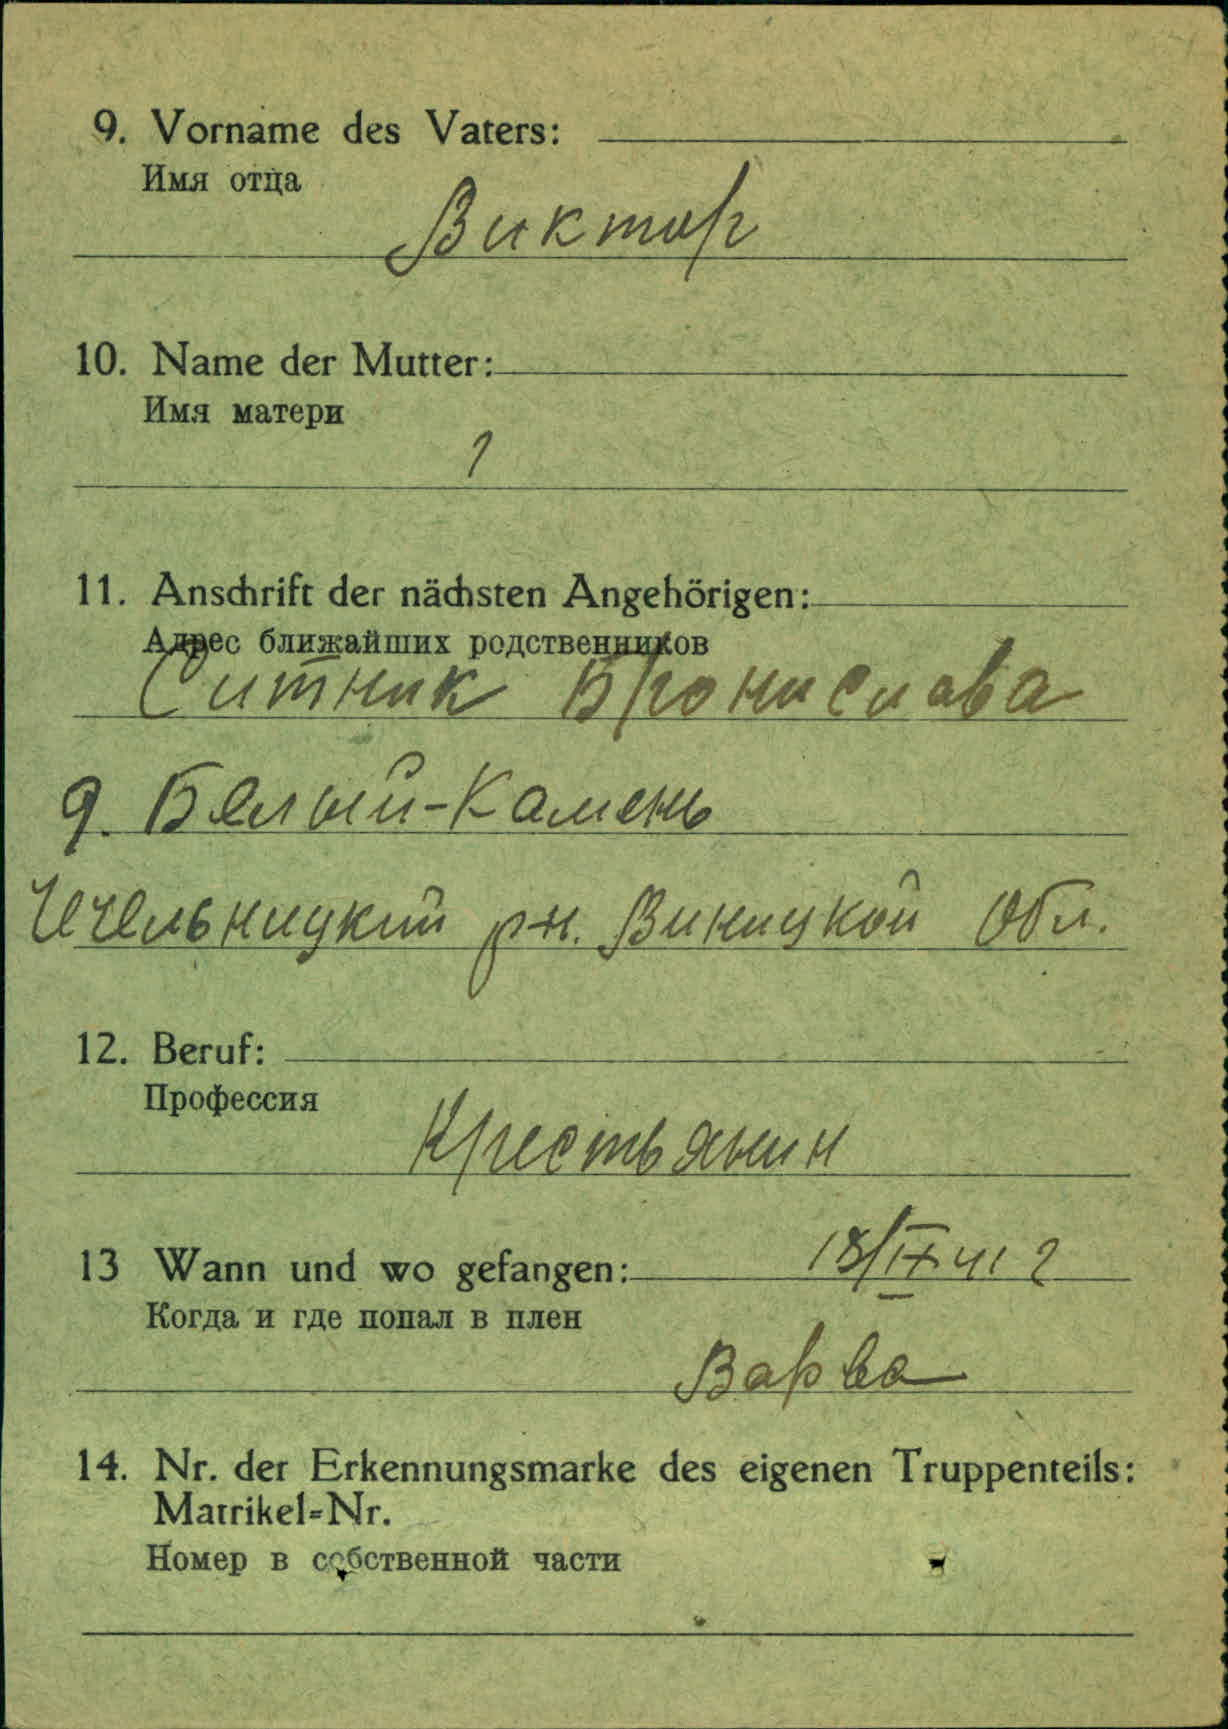 9. Vorname des Vaters:
Имя отца
Виктор
10. Name der Mutter:
Имя матери
11. Anschrift der nächsten Angehörigen:
Адрес ближайших родственников
Ситник Бронислава
д. Белый-Камень
Чечельницкий р-н. Виницкой Обл.
12. Beruf:
Профессия
Крестьянин
13 Wann und wo gefangen: 18/IX 41 г
Когда и где попал в плен
Варва
14. Nr. der Erkennungsmarke des eigenen Truppenteils:
Matrikel=Nr.
Номер в собственной части